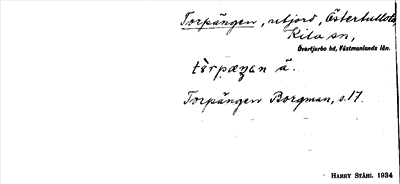 Torpängen, utjord, Östertullbo
Kila sn,
Övertjurbo hd, Västmanlands län.
tòrpæŋan ä.
Torpängen Borgman, s. 17.
HARRY STÅHL 1934